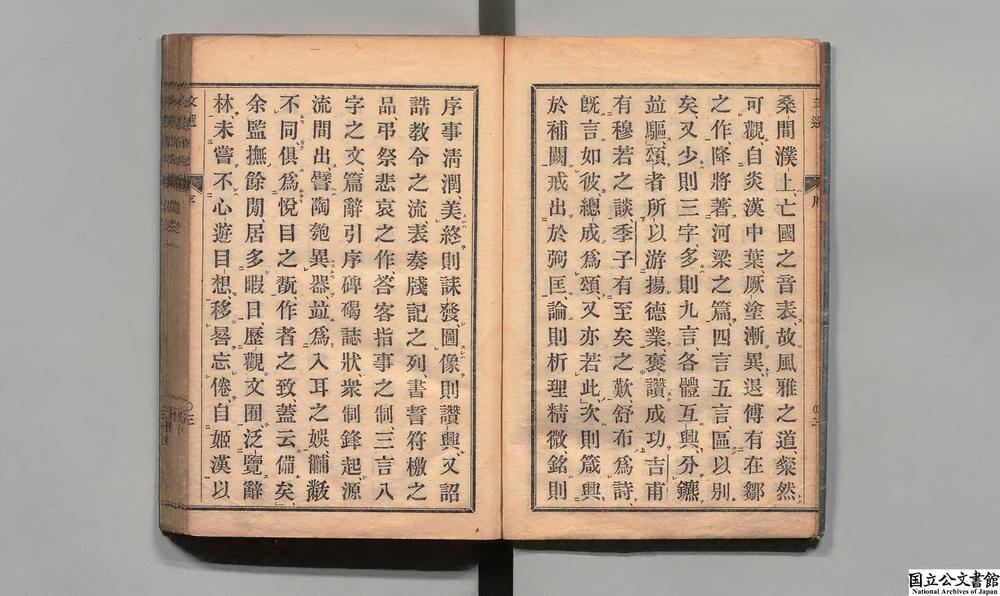 桑間濮上、亡國之音表、故風雅之道、粲然
可觀、自炎漢中葉、厥塗漸異、退傅有在鄒
之作、降將著河梁之篇、四言五言、區以別
矣、又少則三字、多則九言、各體互興、分鑣
竝驅、頌者所以游揚德業、褒讚成功、吉甫
有穆若之談、季子有至矣之歎、舒布爲詩、
既言如彼、總成爲頌、又亦若此、次則箴興
於補闕、戒出於弼匡、論則析理精微、銘則
序事淸潤、美終則誄發、圖像則讚興、又詔
誥敎令之流、表奏牋記之列、書誓符檄之
品、弔祭悲哀之作、答客指事之制、三言八
字之文、篇辭引序、碑碣誌狀、衆制鋒起、源
流間出、譬陶匏異器、竝爲入耳之娛、黼黻
不同、俱爲悅目之翫、作者之致、蓋云備矣、
余監撫餘閒、居多暇日、歷觀文囿、泛覽辭
林、未嘗不心遊目想、移晷忘倦、自姬漢以
国立公文書館
National Archives of Japan